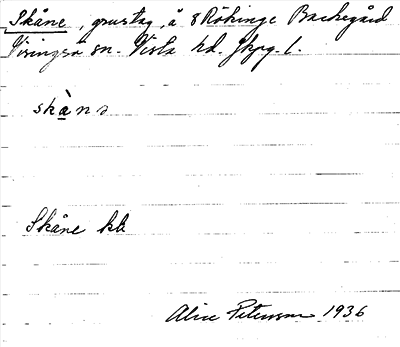 Skåne, grustag, å 8 Rökinge Backegård
Visingsö sn. Vista hd. Jkpg. l.
skànə
Skåne kb
Alice Petersson 1936